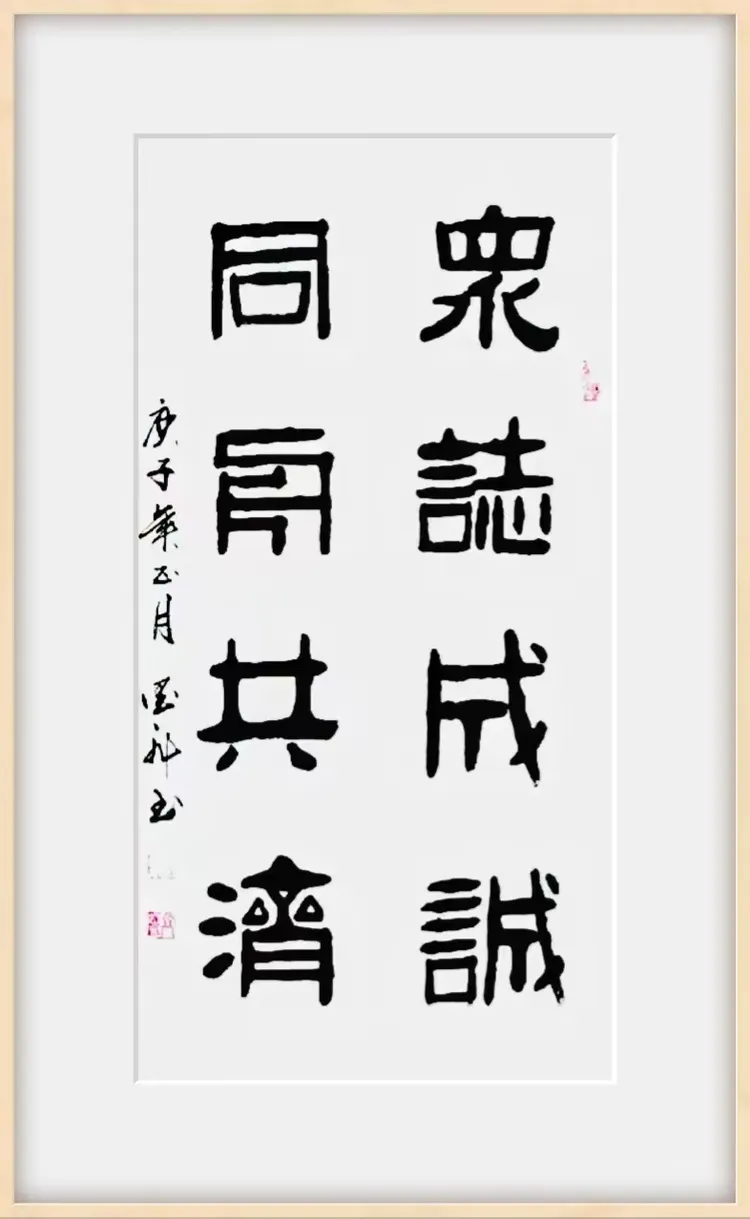 衆誌成誠
同舟共濟
庚子年正月